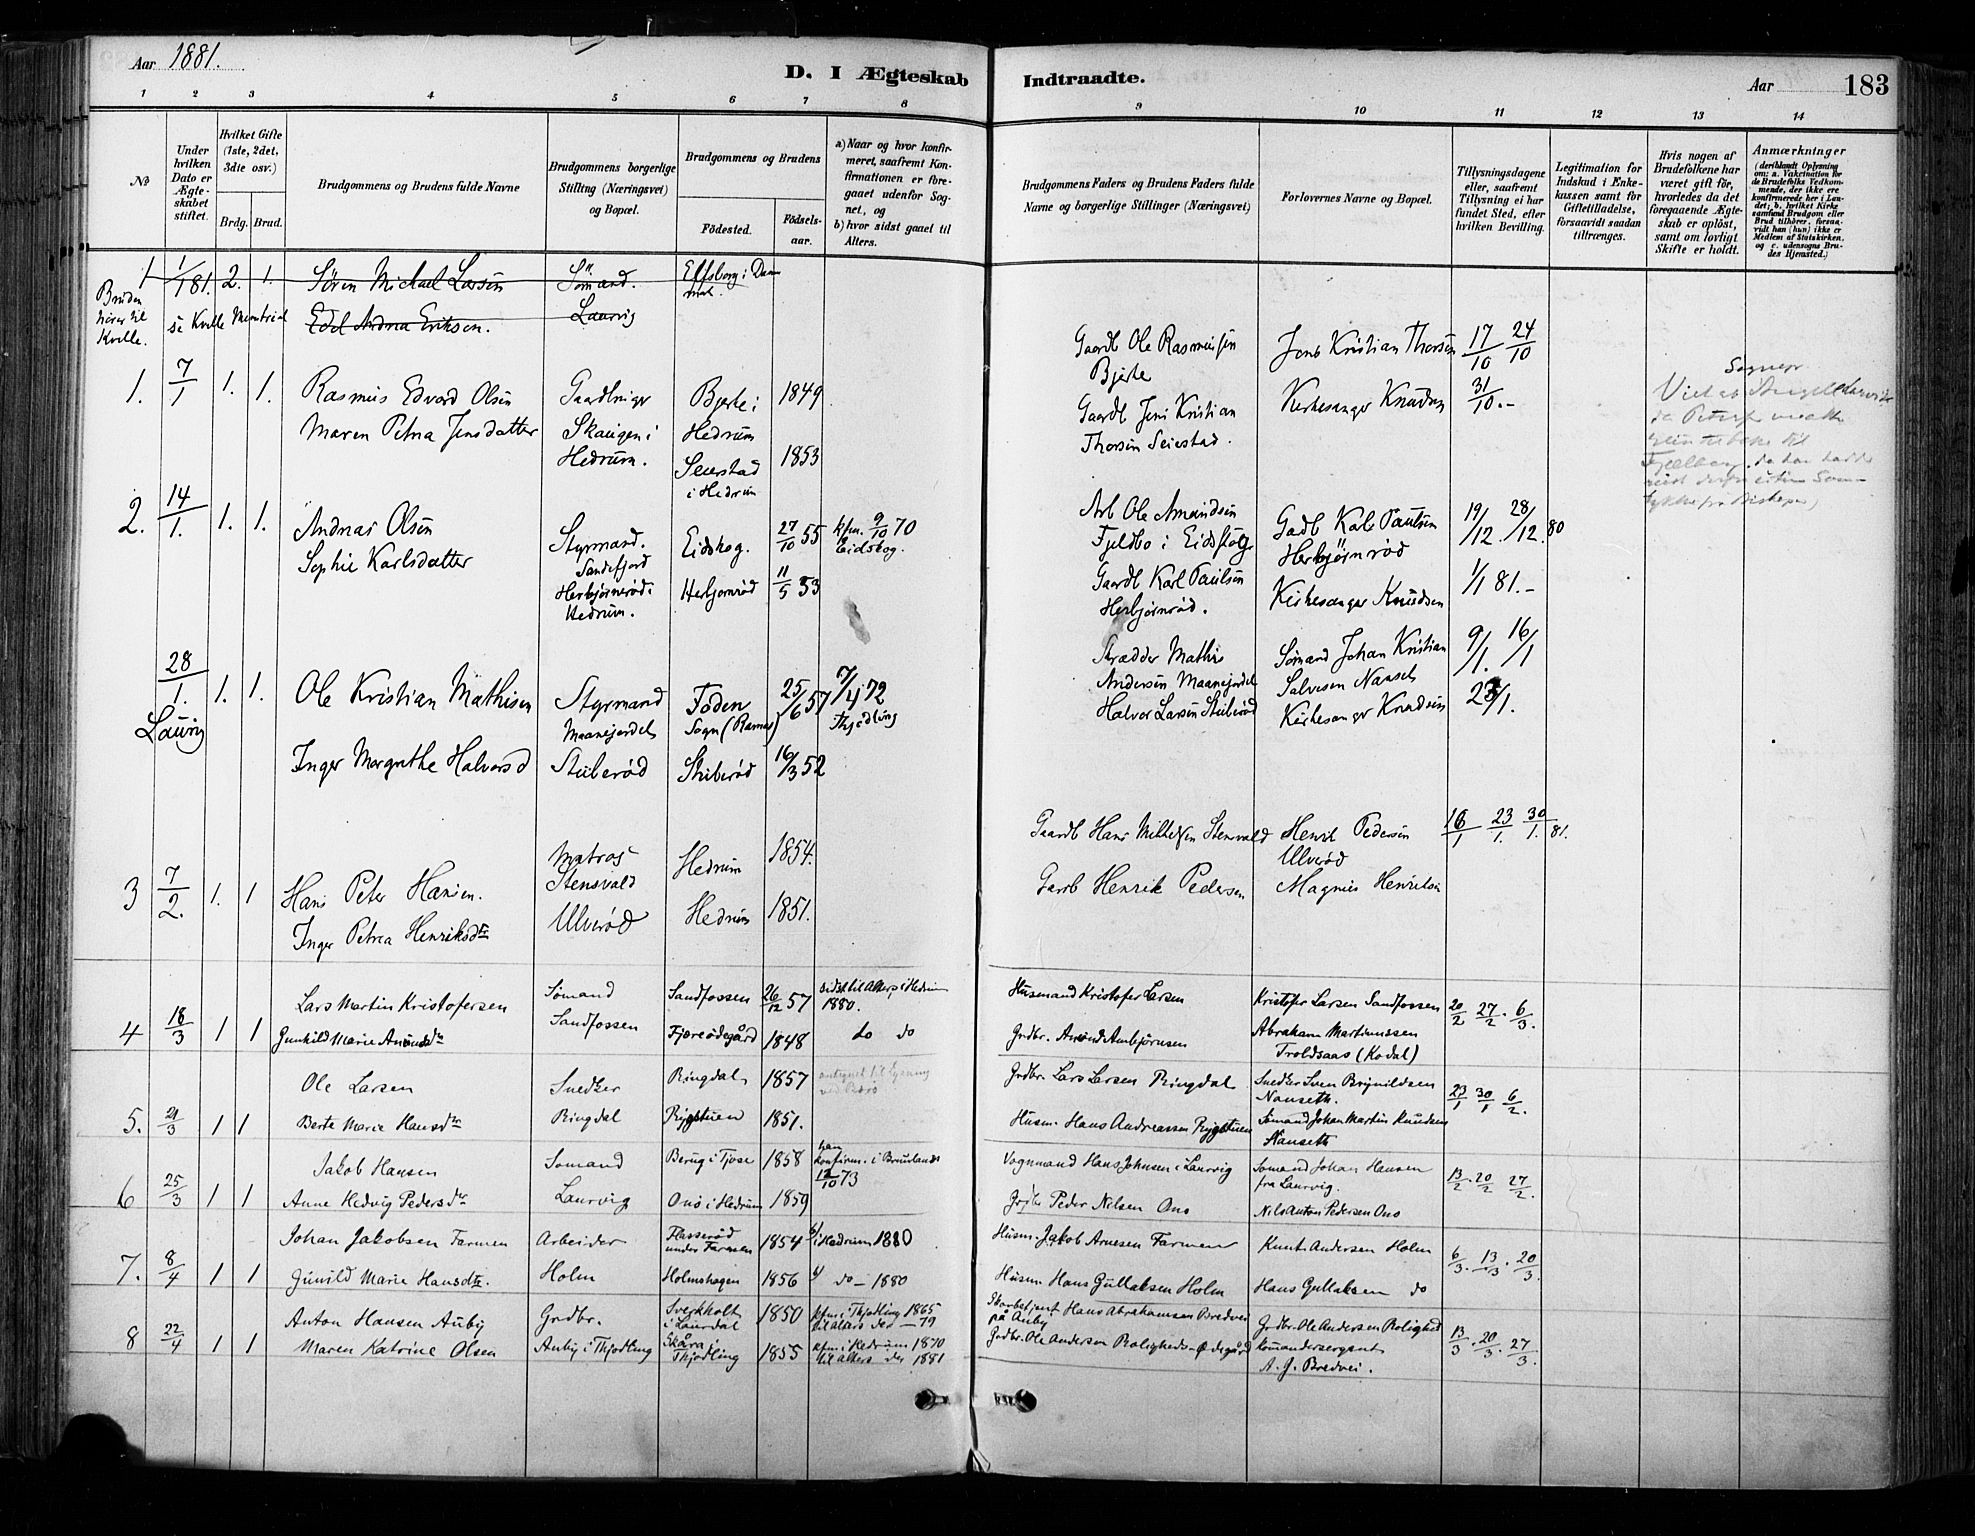 Aar 1881.
D. I Ægteskab Indtraadte.
Aar 183
1 2 3 4 5 6 7 8 9 10 11 12 13 14
No
Under hvilken Dato er Ægteskabet stiftet.
Hvilket Gifte (1ste, 2det, 3die osv.)
Brdg. Brud.
Brudgommens og Brudens fulde Navne
Brudgommens borgerlige Stilling (Næringsvei) og Bopæl.
Brudgommens og Brudens
Fødested. Fødselsaar.
a) Naar og hvor konfirmeret, saafremt Konfirmationen er foregaaet udenfor Sognet, og
b) hvor sidst gaaet til Alters.
Brudgommens Faders og Brudens Faders fulde Navne og borgerlige Stillinger (Næringsvei)
Forlovernes Navne og Bopæl.
Tillysningsdagene eller, saafremt Tillysning ei har fundet Sted, efter hvilken Bevilling.
Legitimation for Indskud i Enkekassen samt for Giftetilladelse, forsaavidt saadan tiltrænges.
Hvis nogen af Brudefolkene har været gift før, hvorledes da det foregaaende Ægteskab er opløst, samt om lovligt Skifte er holdt.
Anmærkninger
(deriblandt Oplysning om: a. Vakcination for de Brudefolks Vedkommende, der ikke ere konfirmerede her i Landet; b. hvilket Kirkesamfund Brudgom eller Brud tilhører, forsaavidt han (hun) ikke er Medlem af Statskirken, og c. udensogns Brudes Hjemsted.)
1 1/1 81. 2. 1. Søren Michael Larsen Sømand. Elfsborg i Danmark.
Bruden hører til Kvelle. se Kvelle Ministrial Edel Andrea Eriksen. Laurvig
1. 7/1 1. 1. Rasmus Edvard Olsen Gaardbruger Bjerke i 1849
Maren Petra Jensdatter Skaugen i Hedrum
Hedrum. Seierstad 1853
i Hedrum
Gaardb Ole Rasmussen Jens Kristian Thorsen 17/10 24/10
Bjerke
Gaardb Jens Kristian Kirkesanger Knudsen 31/10.-
Thorsen Seiestad.
2. 14/1. 1. 1. Andreas Olsen Styrmand. Eidskog. 27/10 55 kfm. 9/10 70
Sophie Karlsdatter Sandefjord Eidskog.
Herbjørnrød i Herbjornrød 11/5 53
Hedrum.
Arb Ole Amundsen Gadb Karl Paulsen 19/12. 28/12. 80
Fjeldbo i Eidskog Herbjørnrød
Gaardb Karl Paulsen Kirkesanger Knudsen 1/1 81.-
Herbjørnrød.
28/1. 1. 1. Ole Kristian Mathisen Styrmand Foden 25/6 57 7/4 72
Laurvig Maanejordet Sogn (Ramnes) Thjødling
Inger Margrethe Halvorsd Stuberød Stuberød 16/3 52
Skrædder Mathis Sømand Johan Kristian 9/1. 16/1
Andersen Maanejordet Salvesen Nanset
Halvor Larsen Stuberød Kirkesanger Knudsen 23/1.
3 7/2. 1. 1 Hans Peter Hansen. Matros Hedrum 1854.
Stensvald
Inger Petrea Henriksdtr Ulverød Hedrum 1851.
Gaardb Hans Mikkelsen Stensvald Henrik Pedersen 16/1 23/1. 30/1. 81.
Ulverød
Garb Henrik Pedersen Magnus Henriksen
4 18/3 1 1 Lars Martin Kristofersen Sømand Sandfossen 26/12 57 sidst til Alters i Hedrum 1880.
Gunhild Marie Amundsdtr Sandfossen Fjæreødegård 1848 do do
Husmand Kristofer Larsen Kristofer Larsen Sandfossen 20/2 27/2. 6/3.
Grdbr. Amund Ambjørnsen Abraham Martinussen
Troldsaas (Kodal)
5. 21/3 1 1 Ole Larsen Snedker Ringdal 1857
Berte Marie Hansdtr Ringdal Rygstuen 1851.
Grdbr. Lars Larsen Ringdal Snedker Sven Brynildsen 23/1 30/1 6/2.
Nanseth.
Husm. Hans Andreassen Rygstuen Sømand Johan Martin Knudsen
Nanseth
6 25/3 1 1 Jakob Hansen Sømand Berug i Tjose 1858 han konfirm. i Brunlanes 12/10 73
Anne Hedvig Pedersdtr Laurvig Ono i Hedrum 1859
Vognmand Hans Johnsen i Laurvig Sømand Johan Hansen 13/2. 20/2 27/2.
fra Laurvig.
Peder Nilsen Ono Nils Anton Pedersen Ono
7. 8/4 1 1 Johan Jakobsen Farmen Arbeider Flasserød under Farmen 1854 b) i Hedrum 1880
Gunild Marie Hansdtr. Holm Holmshagen 1856 b) do - 1880
Husm. Jakob Arnesen Farmen Knut Andersen Holm 6/3. 13/3. 20/3.
Husm. Hans Gullaksen Holm Hans Gullaksen do
8 22/4 1 1 Anton Hansen Auby Grdbr. Sverkholt i Laurdal 1850 kfm i Thjødling 1865 til alters der — 79
Maren Katrine Olsen Auby i Thjødling Skåra i Thjødling 1855 kfm. i Hedrum 1870 til Alters der 1881
Hans Abrahamsen Bredvei Grdbr. Ole Andersen Rolighed 13/3. 20/3. 27/3.
på Auby
Grdbr. Ole Andersen Roligheds-Ødegård Komandersergeant
A. J. Bredvei.